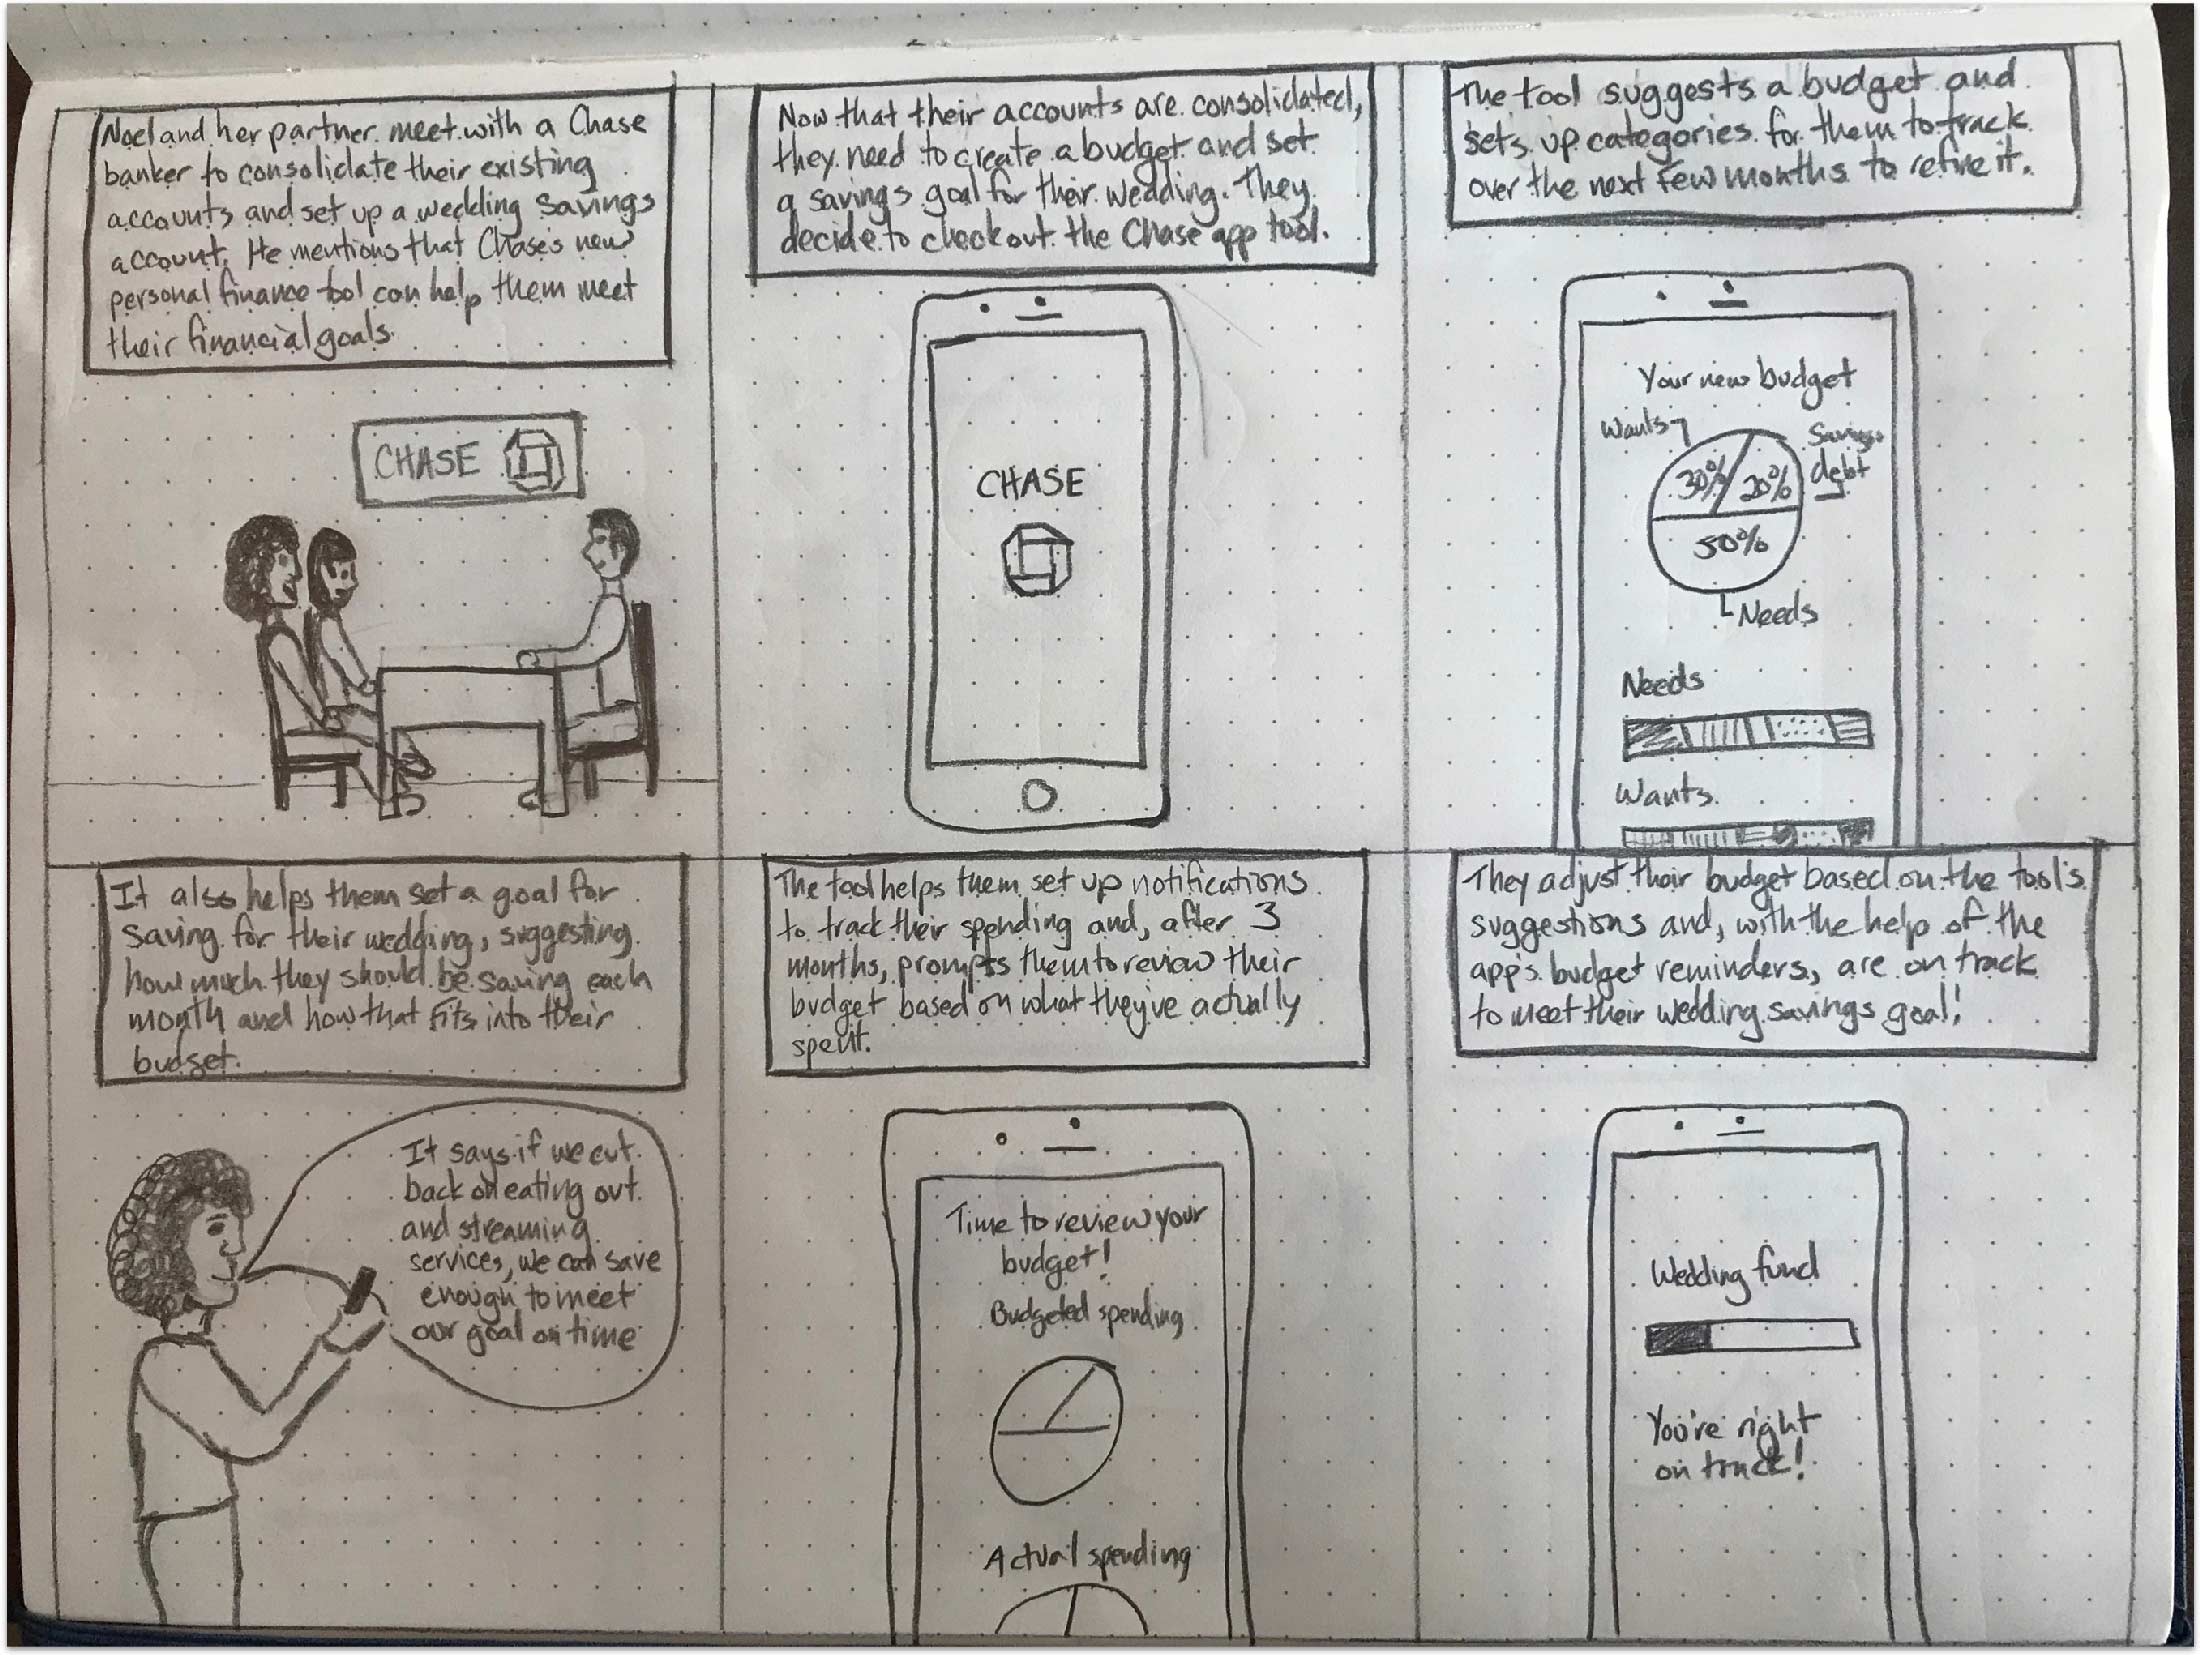 Noel and her partner meet with a Chase
banker to consolidate their existing
accounts and set up a wedding savings
account. He mentions that Chase's new
personal finance tool can help them meet
their financial goals.
CHASE
Now that their accounts are consolidated,
they need to create a budget and set
a savings goal for their wedding. They
decide to check out the Chase app tool.
CHASE
The tool suggests a budget and
sets up categories for them to track
over the next few months to refine it.
Your new budget
Wants
Savings
debt
30%
20%
50%
Needs
Needs
Wants
It also helps them set a goal for
saving for their wedding, suggesting
how much they should be saving each
month and how that fits into their
budget.
It says if we cut
back on eating out
and streaming
services, we can save
enough to meet
our goal on time
The tool helps them set up notifications
to track their spending and, after 3
months, prompts them to review their
budget based on what they've actually
spent.
Time to review your
budget!
Budgeted spending
Actual spending
They adjust their budget based on the tool's
suggestions and, with the help of the
app's budget reminders, are on track
to meet their wedding savings goal!
Wedding fund
You're right
on track!